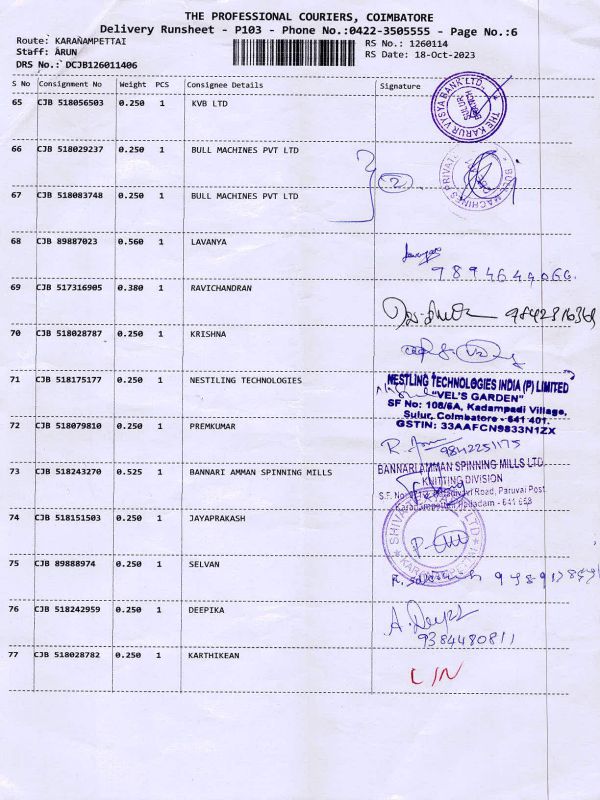 THE PROFESSIONAL COURIERS, COIMBATORE
Delivery Runsheet - P103 - Phone No.:0422-3505555 - Page No.:6
Route: KARANAMPETTAI
RS No.: 1260114
Staff: ARUN
RS Date: 18-Oct-2023
DRS No.: DCJB126011406
S No Consignment No Weight PCS Consignee Details Signature
65 CJB 518056503 0.250 1 KVB LTD
THE KARUR VYSYA BANK LTD.
SULUR
BRANCH
66 CJB 518029237 0.250 1 BULL MACHINES PVT LTD
BULL MACHINES PRIVATE
67 CJB 518083748 0.250 1 BULL MACHINES PVT LTD
2
68 CJB 89887023 0.560 1 LAVANYA
69 CJB 517316905 0.380 1 RAVICHANDRAN
70 CJB 518028787 0.250 1 KRISHNA
71 CJB 518175177 0.250 1 NESTILING TECHNOLOGIES
NESTLING TECHNOLOGIES INDIA (P) LIMITED
"VEL'S GARDEN"
SF No: 106/6A, Kadampadi Village,
Sulur, Coimbatore - 641 401.
GSTIN: 33AAFCN9833N1ZX
72 CJB 518079810 0.250 1 PREMKUMAR
9842251175
73 CJB 518243270 0.525 1 BANNARI AMMAN SPINNING MILLS
BANNARI AMMAN SPINNING MILLS LTD
KNITTING DIVISION
Road, Paruvai Post
Karanampettai, Palladam - 641 658
74 CJB 518151503 0.250 1 JAYAPRAKASH
75 CJB 89888974 0.250 1 SELVAN
76 CJB 518242959 0.250 1 DEEPIKA
A. Deepi
9384480811
77 CJB 518028782 0.250 1 KARTHIKEAN
L/N